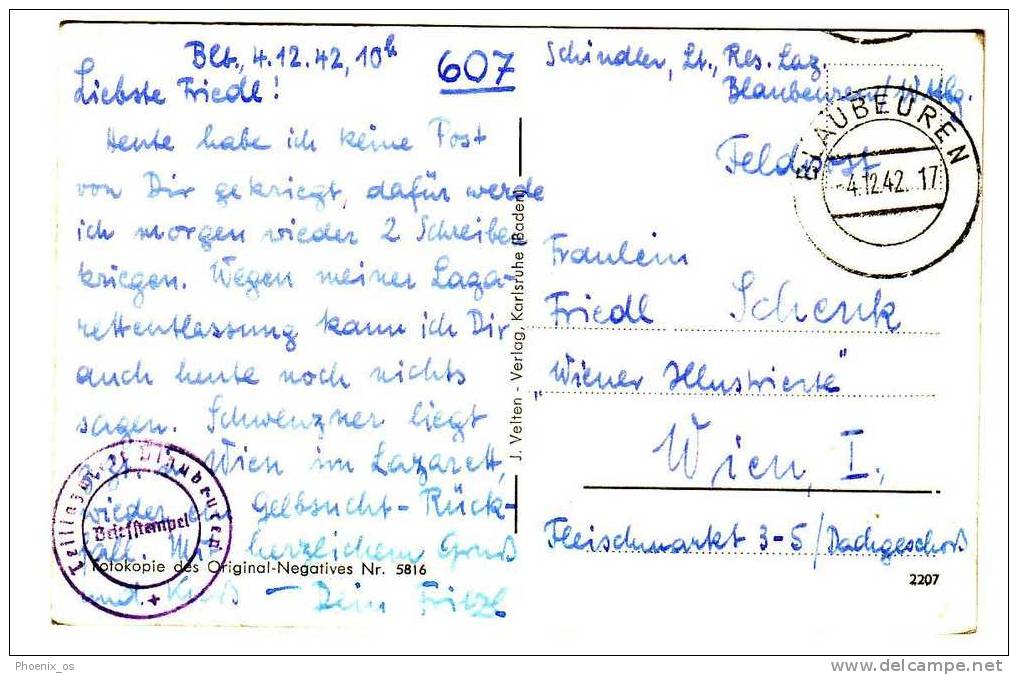 Blb., 4.12.42, 10h
607
Liebste Friedl!
Heute habe ich keine Post
von Dir gekriegt, dafür werde
ich morgen wieder 2 Schreiben
kriegen. Wegen meiner Laza-
rettentlassung kann ich Dir
auch heute noch nichts
sagen. Schwenzner liegt
jetzt in Wien im Lazarett,
wieder ein Gelbsucht-Rück-
fall. Mit herzlichem Gruß
und Kuß – Dein Fritzl
Briefstempel
Fotokopie des Original-Negatives Nr. 5816
J. Velten - Verlag, Karlsruhe (Baden)
Schindler, Lt., Res. Laz.
Blaubeuren/Wttbg.
Feldpost
BLAUBEUREN
-4.12.42. 17
Fräulein
Friedl Schenk
„Wiener Illustrierte"
Wien, I.,
Fleischmarkt 3-5/Dachgeschoß
2207
Phoenix_os
delcampe.net